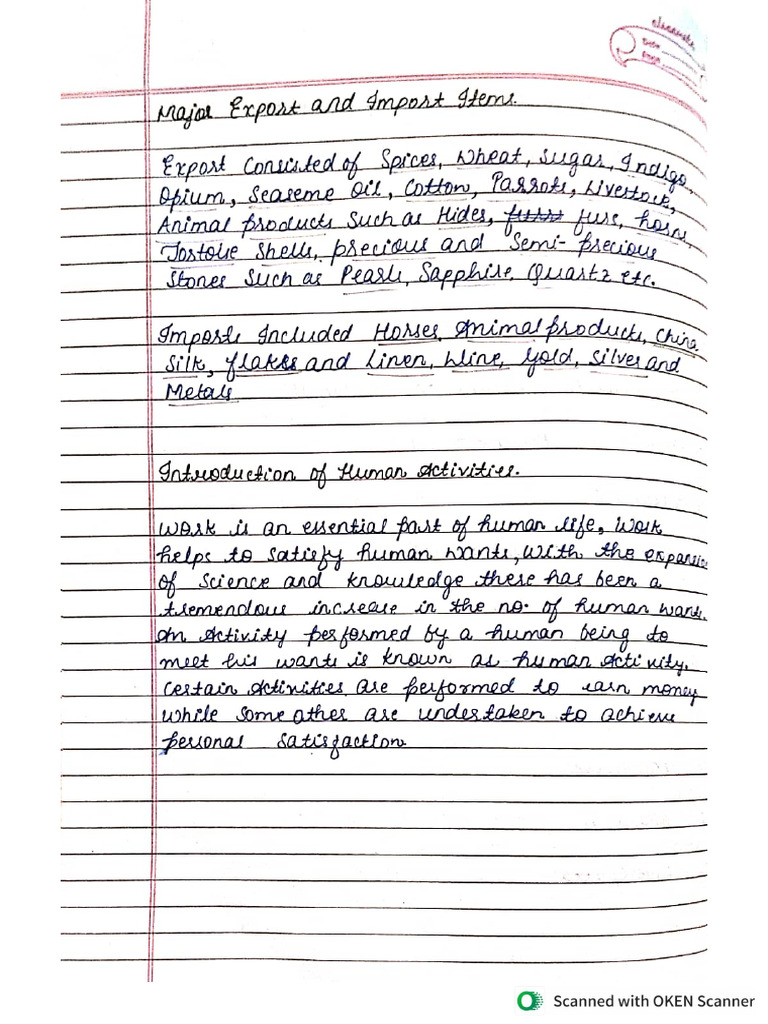 classmate
Date
Page
Major Export and Import Items.
Export Consisted of Spices, wheat, sugar, Indigo,
Opium, Seaseme Oil, Cotton, Parrots, Livestock,
Animal products Such as Hides, furs, horns,
Tostolie Shells, precious and Semi-precious
Stones Such as Pearls, Sapphire, Quartz etc.
Imports Included Horses, Animal products, China
Silk, flakes and Linen, Wine, Gold, Silver and
Metals
Introduction of Human Activities.
Work is an essential part of human life, Work
helps to satisfy human wants, With the expansio
of Science and knowledge there has been a
tremendous increase in the no. of human wants.
An Activity performed by a human being to
meet his wants is known as human activity.
Certain Activities are performed to earn money
while Some other are undertaken to achieve
personal satisfaction
Scanned with OKEN Scanner